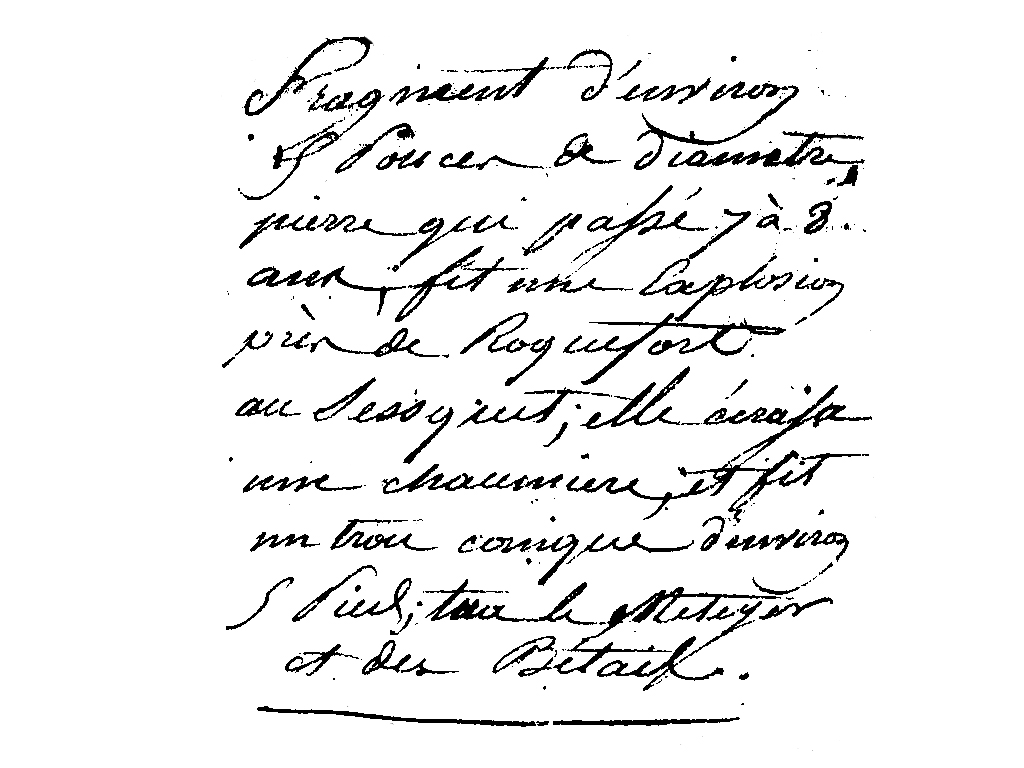 Fragment d'environ
Pouces de diametre,
pierre qui passé 7 à 8.
ans, fit une Explosion
près de Roquefort
au Sessquet; elle écrasa
une chaumiere, et fit
un trou conique d'environ
5 Pieds; tua le Meteyer
et des Bétail.